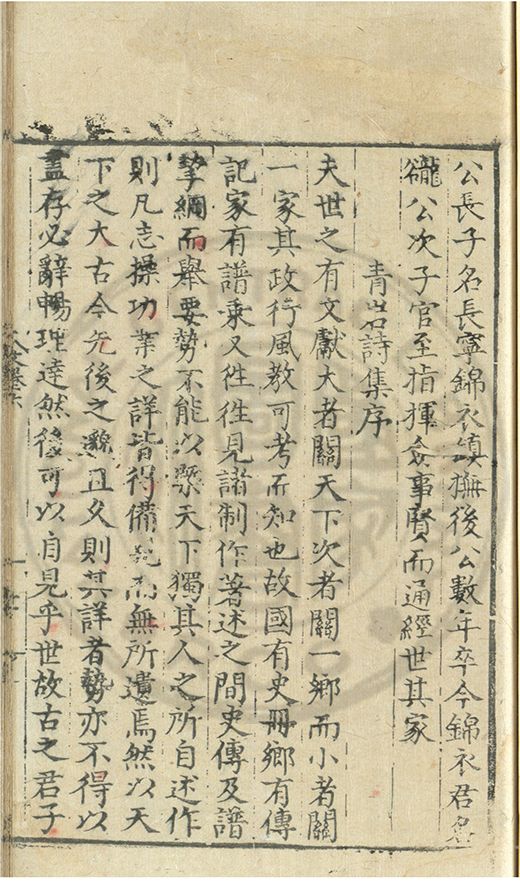 公長子名長寧錦衣鎮撫後公數年卒今錦衣君名
公次子官至指揮僉事賢而通經世其家
青岩詩集序
夫世之有文獻大者關天下次者關一鄉而小者關
一家其政行風教可考而知也故國有史冊鄉有傳
記家有譜乗又徃徃見諸制作著述之間史傳及譜
挈綱而舉要勢不能以槩天下獨其人之所自述作
則凡志操功業之詳皆得備無所遺焉然以天
下之大古今先後之邈且久則其詳者勢亦不得以
盡存必辭暢理達然後可以自見乎世故古之君子